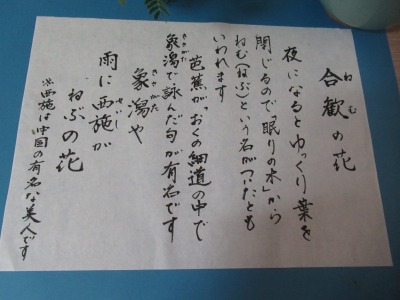 ねむ
合歓の花
夜になるとゆっくり葉を
閉じるので「眠りの木」から
ねむ(ねぶ)という名がついたとも
いわれます
芭蕉が、おくの細道の中で
きさがた
象潟で詠んだ句が有名です
きさがた
象潟や
せいし
雨に西施が
ねぶの花
※西施は中国の有名な美人です